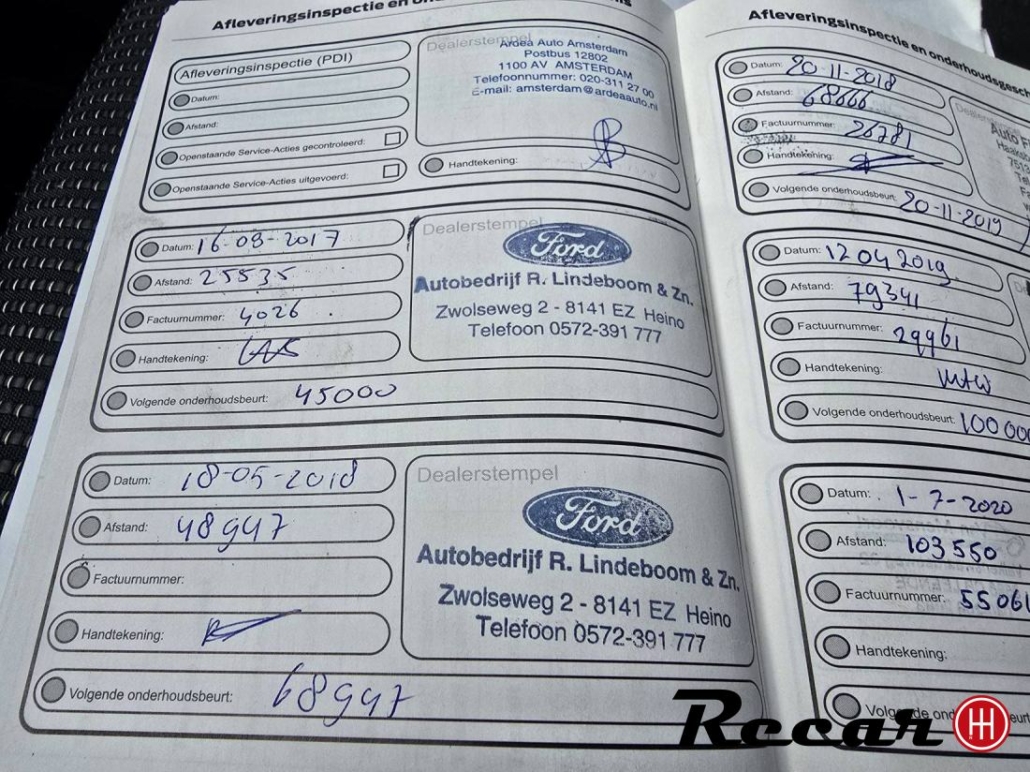 Afleveringsinspectie en
Afleveringsinspectie (PDI)
Datum:
Afstand:
Openstaande Service-Acties gecontroleerd:
Openstaande Service-Acties uitgevoerd:
Dealerstempel
Ardea Auto Amsterdam
Postbus 12802
1100 AV AMSTERDAM
Telefoonnummer: 020-311 27 00
E-mail: amsterdam@ardeaauto.nl
Handtekening:
Datum: 16-09-2017
Afstand: 25535
Factuurnummer: 4026
Handtekening:
Volgende onderhoudsbeurt: 45000
Dealerstempel
Ford
Autobedrijf R. Lindeboom & Zn.
Zwolseweg 2 - 8141 EZ Heino
Telefoon 0572-391 777
Datum: 18-05-2018
Afstand: 48947
Factuurnummer:
Handtekening:
Volgende onderhoudsbeurt: 68947
Dealerstempel
Ford
Autobedrijf R. Lindeboom & Zn.
Zwolseweg 2 - 8141 EZ Heino
Telefoon 0572-391 777
Afleveringsinspectie en onderhoudsgesch
Datum: 20-11-2018
Afstand: 68666
Factuurnummer: 26781
Handtekening:
Volgende onderhoudsbeurt: 20-11-2019
Auto F
Datum: 12 04 2019
Afstand: 79341
Factuurnummer: 29961
Handtekening:
Volgende onderhoudsbeurt: 100000
Datum: 1-7-2020
Afstand: 103550
Factuurnummer: 55061
Handtekening:
Volgende ond
Recar